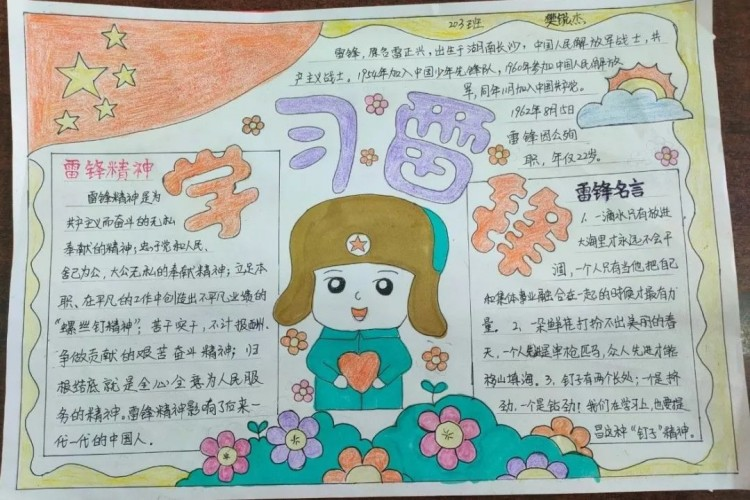 203班 樊锐杰.
雷锋,原名雷正兴,出生于湖南长沙,中国人民解放军战士,共
产主义战士。1954年加入中国少年先锋队,1960年参加中国人民解放
军,同年11月加入中国共产党。
1962年8月15日
雷锋因公殉
职,年仅22岁。
学习雷锋
雷锋精神
雷锋精神是为
共产主义而奋斗的无私
奉献的精神;忠于党和人民、
舍己为公,大公无私的奉献精神;立足本
职、在平凡的工作中创造出不平凡业绩的
“螺丝钉精神”;苦干实干,不计报酬、
争做贡献的艰苦奋斗精神;归
根结底就是全心全意为人民服
务的精神。雷锋精神影响了后来一
代一代的中国人.
雷锋名言
1.一滴水只有放进
大海里才永远不会干
涸,一个人只有当他把自己
和集体事业融合在一起的时候才最有力
量。2.一朵鲜花打扮不出美丽的春
天,一个人单枪匹马,众人先进才能
移山填海。3.钉子有两个长处:一个是挤
劲,一个是钻劲!我们在学习上,也要提
倡这种“钉子”精神。